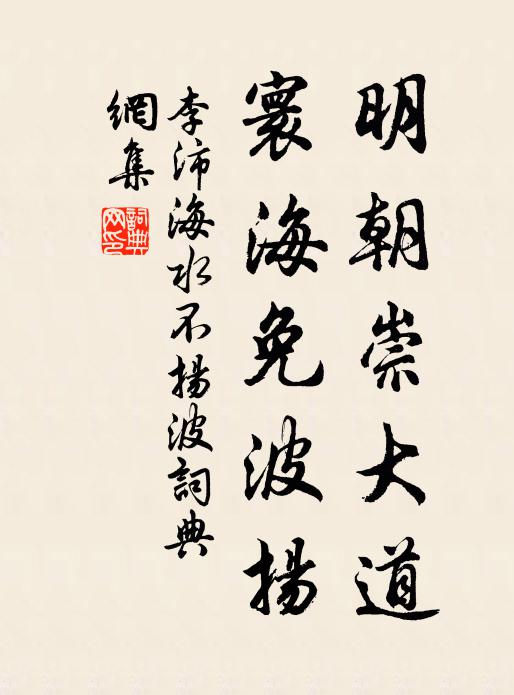 明朝崇大道
寰海免波揚
李沛海水不揚波詞典
網集
詞典
网印